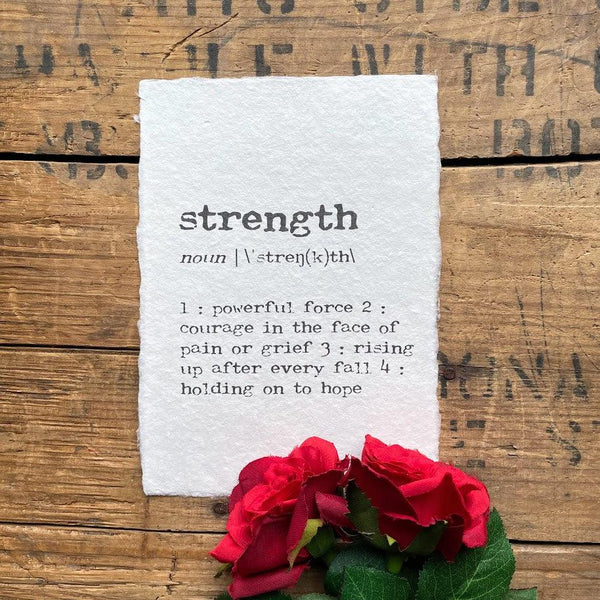 WITH
strength
noun | \ˈstreŋ(k)th\
1 : powerful force 2 :
courage in the face of
pain or grief 3 : rising
up after every fall 4 :
holding on to hope